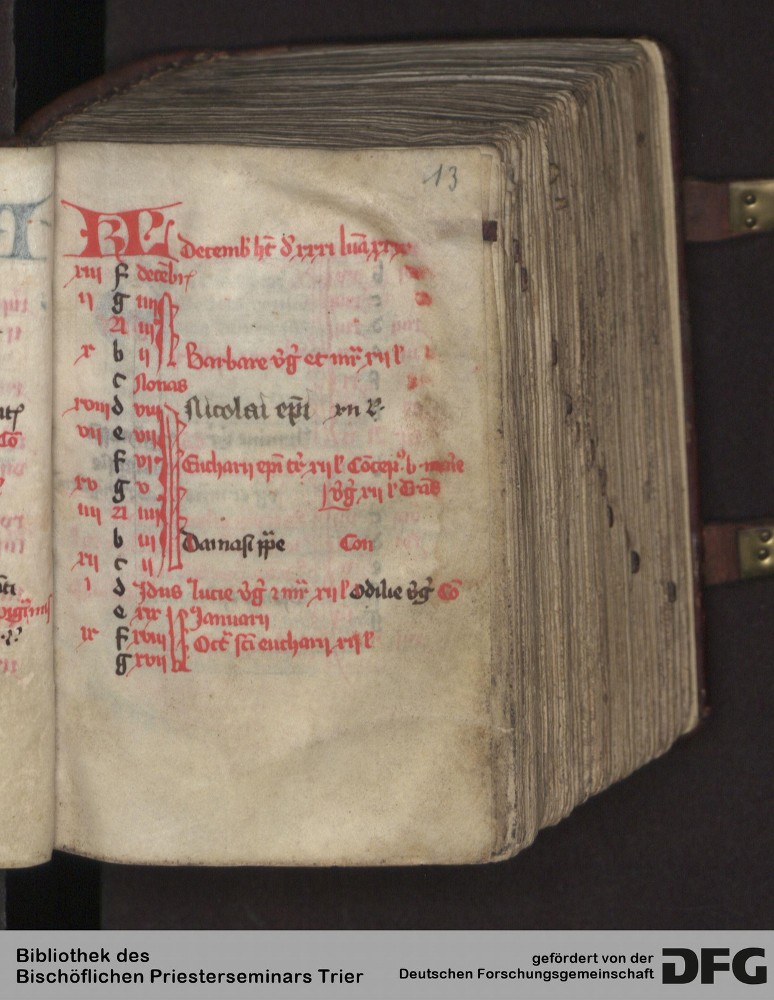 13
KL Decemb ht d xxxi luā xxx
xiii f decēbr
ii g iiii
A iii
x b ii Barbare vg et mr xii l
c Nonas
xviii d viii Nicolai epi xii l
vii e vii
f vi Eucharii epi tr xii l Cōcep b marie
xv g v vg xii l
iiii A iiii
b iii Damasi ppe Com
xii c ii
i d Idus Lucie vg 2 mr xii l Odilie vg Cō
e xix Januarii
ix f xviii Oct sci eucharii xii l
g xvii
Bibliothek des
Bischöflichen Priesterseminars Trier
gefördert von der
Deutschen Forschungsgemeinschaft
DFG